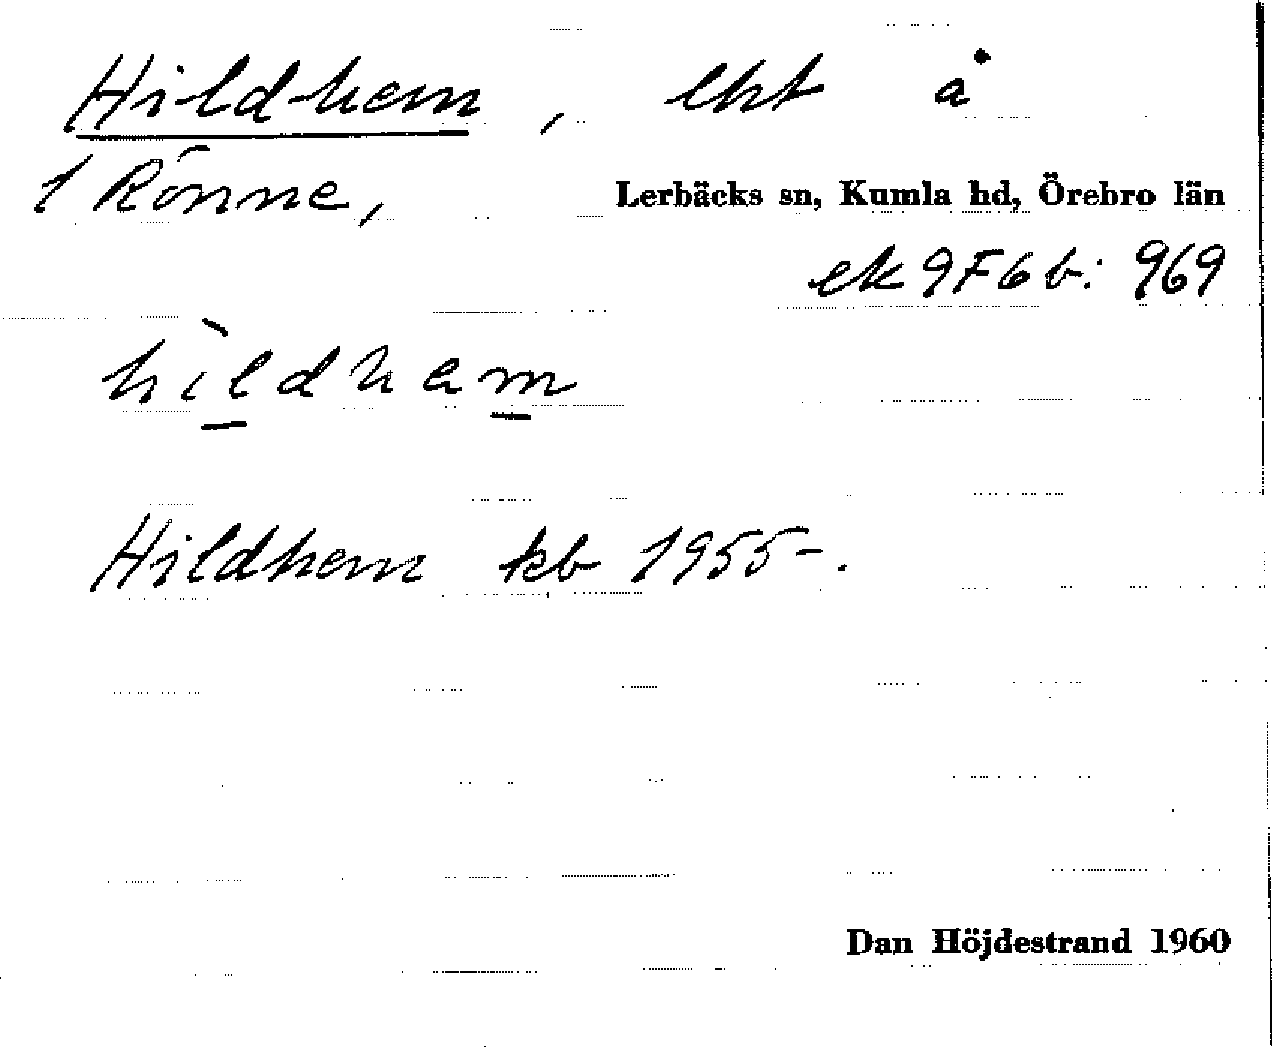 Hildhem, lht å
1 Rönne, Lerbäcks sn, Kumla hd, Örebro län
ek 9F6b: 969
hìldhem
Hildhem kb 1955-.
Dan Höjdestrand 1960